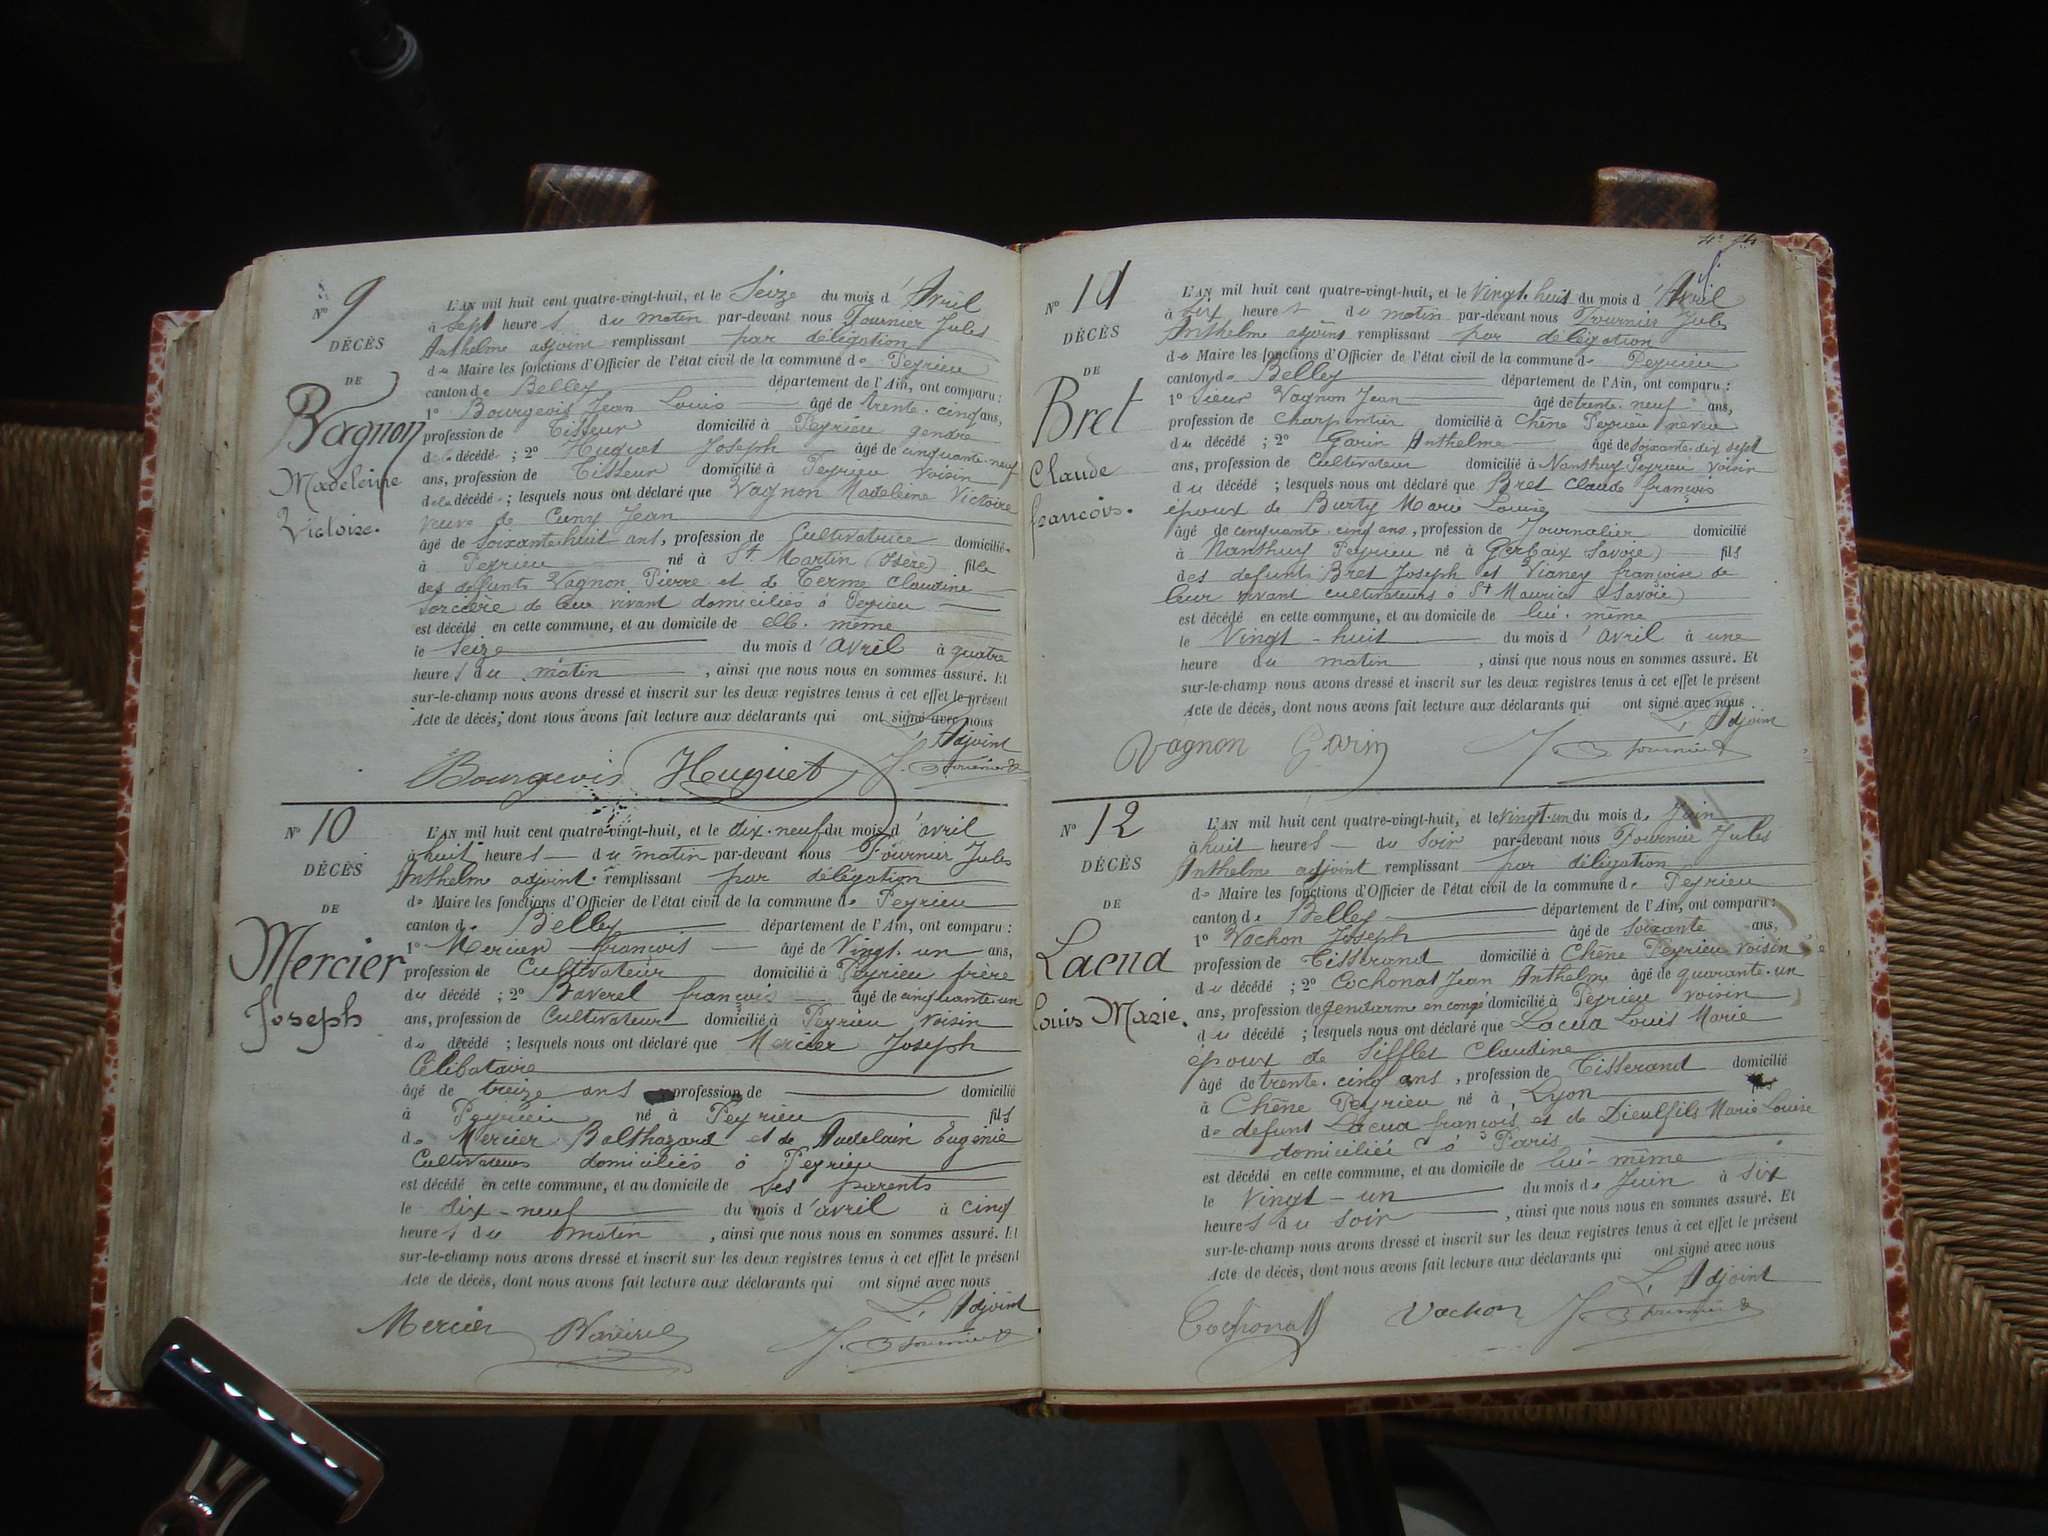 N° 9
DÉCÈS
DE
Vagnon
Madeleine
Victoire.
L'AN mil huit cent quatre-vingt-huit, et le Seize du mois d'Avril
à Sept heures du matin par-devant nous Fournier Jules
Anthelme adjoint remplissant par délégation
du Maire les fonctions d'Officier de l'état civil de la commune de Peyrieu
canton de Belley département de l'Ain, ont comparu :
1° Bourgeois Jean Louis âgé de trente-cinq ans,
profession de Tisseur domicilié à Peyrieu gendre
de la décédé ; 2° Huguet Joseph âgé de cinquante-neuf
ans, profession de Tisseur domicilié à Peyrieu voisin
de la décédé ; lesquels nous ont déclaré que Vagnon Madeleine Victoire
veuve de Cuny Jean
âgé de soixante-huit ans, profession de Cultivatrice domicilié
à Peyrieu né à St Martin (Isère) fille
des défunts Vagnon Pierre et de Terme Claudine
de leur vivant domiciliés à Peyrieu
est décédé en cette commune, et au domicile de elle-même
le Seize du mois d'avril à quatre
heures du matin, ainsi que nous nous en sommes assuré. Et
sur-le-champ nous avons dressé et inscrit sur les deux registres tenus à cet effet le présent
Acte de décès, dont nous avons fait lecture aux déclarants qui ont signé avec nous
L'Adjoint
Bourgeois Huguet J. Fournier
N° 10
DÉCÈS
DE
Mercier
Joseph
L'AN mil huit cent quatre-vingt-huit, et le dix-neuf du mois d'avril
à huit heures du matin par-devant nous Fournier Jules
Anthelme adjoint remplissant par délégation
du Maire les fonctions d'Officier de l'état civil de la commune de Peyrieu
canton de Belley département de l'Ain, ont comparu :
1° Mercier françois âgé de Vingt-un ans,
profession de Cultivateur domicilié à Peyrieu frère
du décédé ; 2° Baverel françois âgé de cinquante-un
ans, profession de Cultivateur domicilié à Peyrieu voisin
du décédé ; lesquels nous ont déclaré que Mercier Joseph
Célibataire
âgé de treize ans profession de domicilié
à Peyrieu né à Peyrieu fils
de Mercier Balthazard et de Audelain Eugénie
Cultivateurs domiciliés à Peyrieu
est décédé en cette commune, et au domicile de ses parents
le dix-neuf du mois d'avril à cinq
heures du matin, ainsi que nous nous en sommes assuré. Et
sur-le-champ nous avons dressé et inscrit sur les deux registres tenus à cet effet le présent
Acte de décès, dont nous avons fait lecture aux déclarants qui ont signé avec nous
L'Adjoint
Mercier Baverel J. Fournier
N° 11
DÉCÈS
DE
Bret
Claude
françois.
L'AN mil huit cent quatre-vingt-huit, et le Vingt-huit du mois d'Avril
à Six heures du matin par-devant nous Fournier Jules
Anthelme adjoint remplissant par délégation
du Maire les fonctions d'Officier de l'état civil de la commune de Peyrieu
canton de Belley département de l'Ain, ont comparu :
1° Sieur Vagnon Jean âgé de trente-neuf ans,
profession de Charpentier domicilié à Chêne Peyrieu neveu
du décédé ; 2° Garin Anthelme âgé de soixante-dix sept
ans, profession de Cultivateur domicilié à Nanthuy Peyrieu voisin
du décédé ; lesquels nous ont déclaré que Bret Claude françois
époux de Burty Marie Louise
âgé de cinquante-cinq ans, profession de Journalier domicilié
à Nanthuy Peyrieu né à Gerbaix (Savoie) fils
des défunts Bret Joseph et Vianey françoise de
leur vivant cultivateurs à St Maurice (Savoie)
est décédé en cette commune, et au domicile de lui-même
le Vingt-huit du mois d'avril à une
heure du matin, ainsi que nous nous en sommes assuré. Et
sur-le-champ nous avons dressé et inscrit sur les deux registres tenus à cet effet le présent
Acte de décès, dont nous avons fait lecture aux déclarants qui ont signé avec nous
L'Adjoint
Vagnon Garin J. Fournier
N° 12
DÉCÈS
DE
Lacua
Louis Marie.
L'AN mil huit cent quatre-vingt-huit, et le Vingt-un du mois de Juin
à huit heures du Soir par-devant nous Fournier Jules
Anthelme adjoint remplissant par délégation
de Maire les fonctions d'Officier de l'état civil de la commune de Peyrieu
canton de Belley département de l'Ain, ont comparu :
1° Vachon Joseph âgé de Soixante ans,
profession de Tisserand domicilié à Chêne Peyrieu voisin
du décédé ; 2° Cochonat Jean Anthelme âgé de quarante-un
ans, profession de gendarme en congé domicilié à Peyrieu voisin
du décédé ; lesquels nous ont déclaré que Lacua Louis Marie
époux de Sifflet Claudine
âgé de trente-cinq ans, profession de Tisserand domicilié
à Chêne Peyrieu né à Lyon fils
de défunt Lacua françois et de Dieulfils Marie Louise
domiciliée à Paris
est décédé en cette commune, et au domicile de lui-même
le Vingt-un du mois de Juin à six
heures du soir, ainsi que nous nous en sommes assuré. Et
sur-le-champ nous avons dressé et inscrit sur les deux registres tenus à cet effet le présent
Acte de décès, dont nous avons fait lecture aux déclarants qui ont signé avec nous
L'Adjoint
Cochonat Vachon J. Fournier